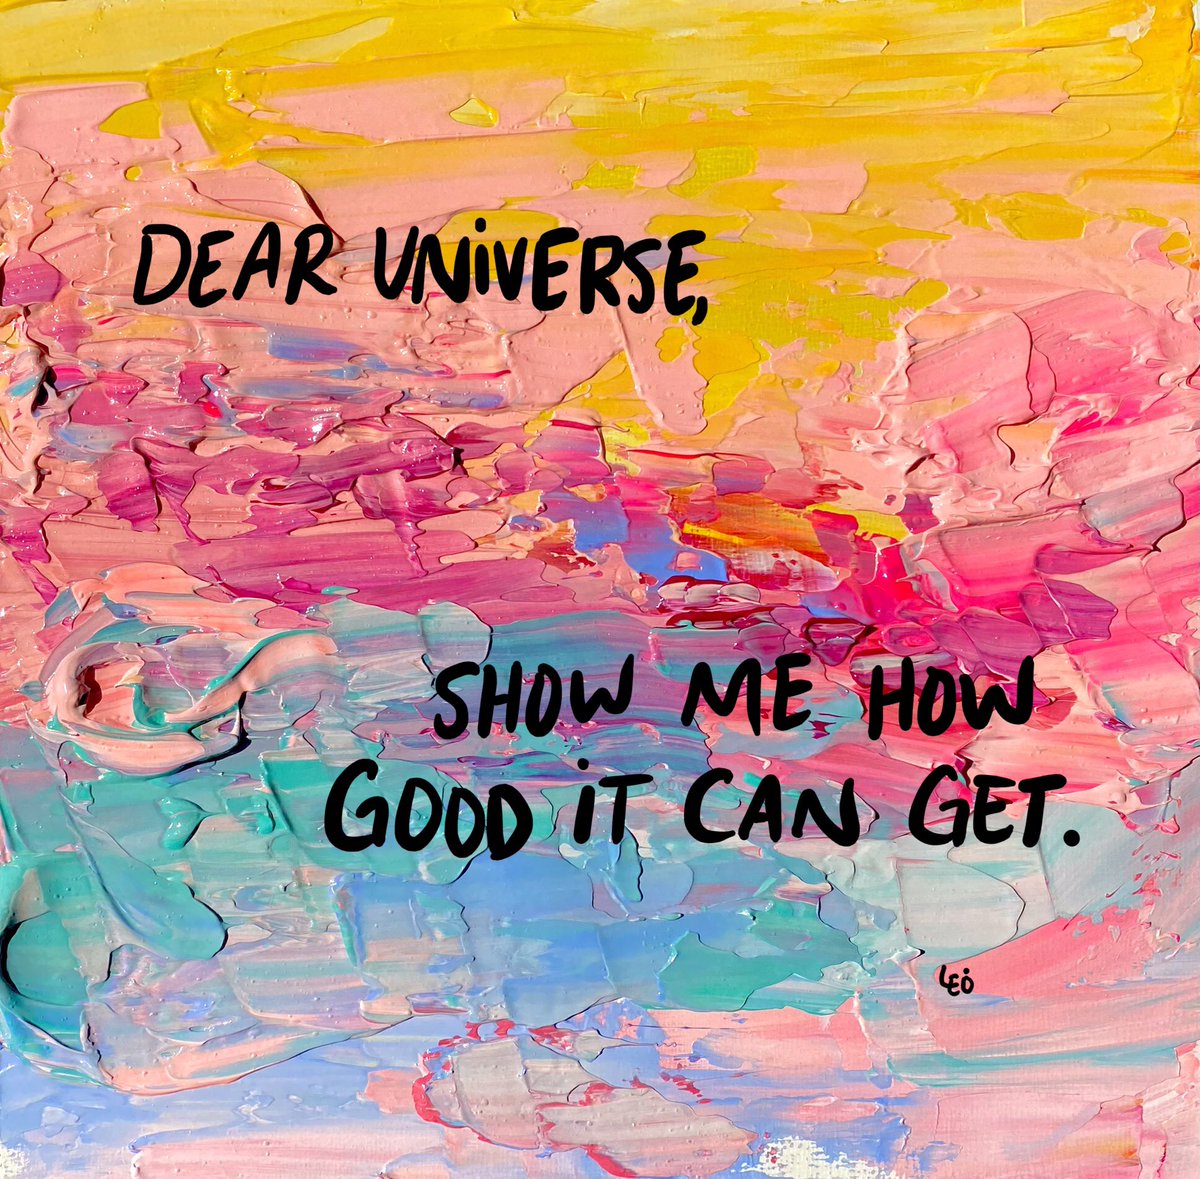 DEAR UNiVERSE,
SHOW ME HOW
GOOD iT CAN GET.
LEO